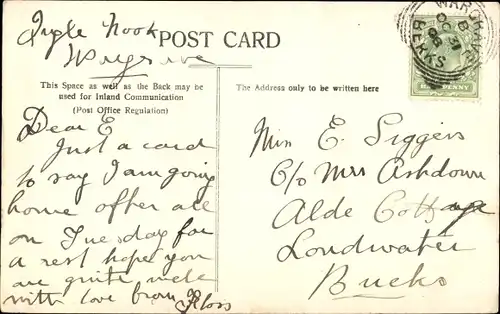 Ingle Nook
Wargrave
POST CARD
This Space as well as the Back may be
used for Inland Communication
(Post Office Regulation)
The Address only to be written here
WARGRAVE
BERKS
HALFPENNY
Dear E
Just a card
to say I am going
home after all
on Tuesday for
a rest hope you
are quite well
with love from Floss
Miss E. Siggers
C/o Mrs Ashdown
Alde Cottage
Loudwater
Bucks